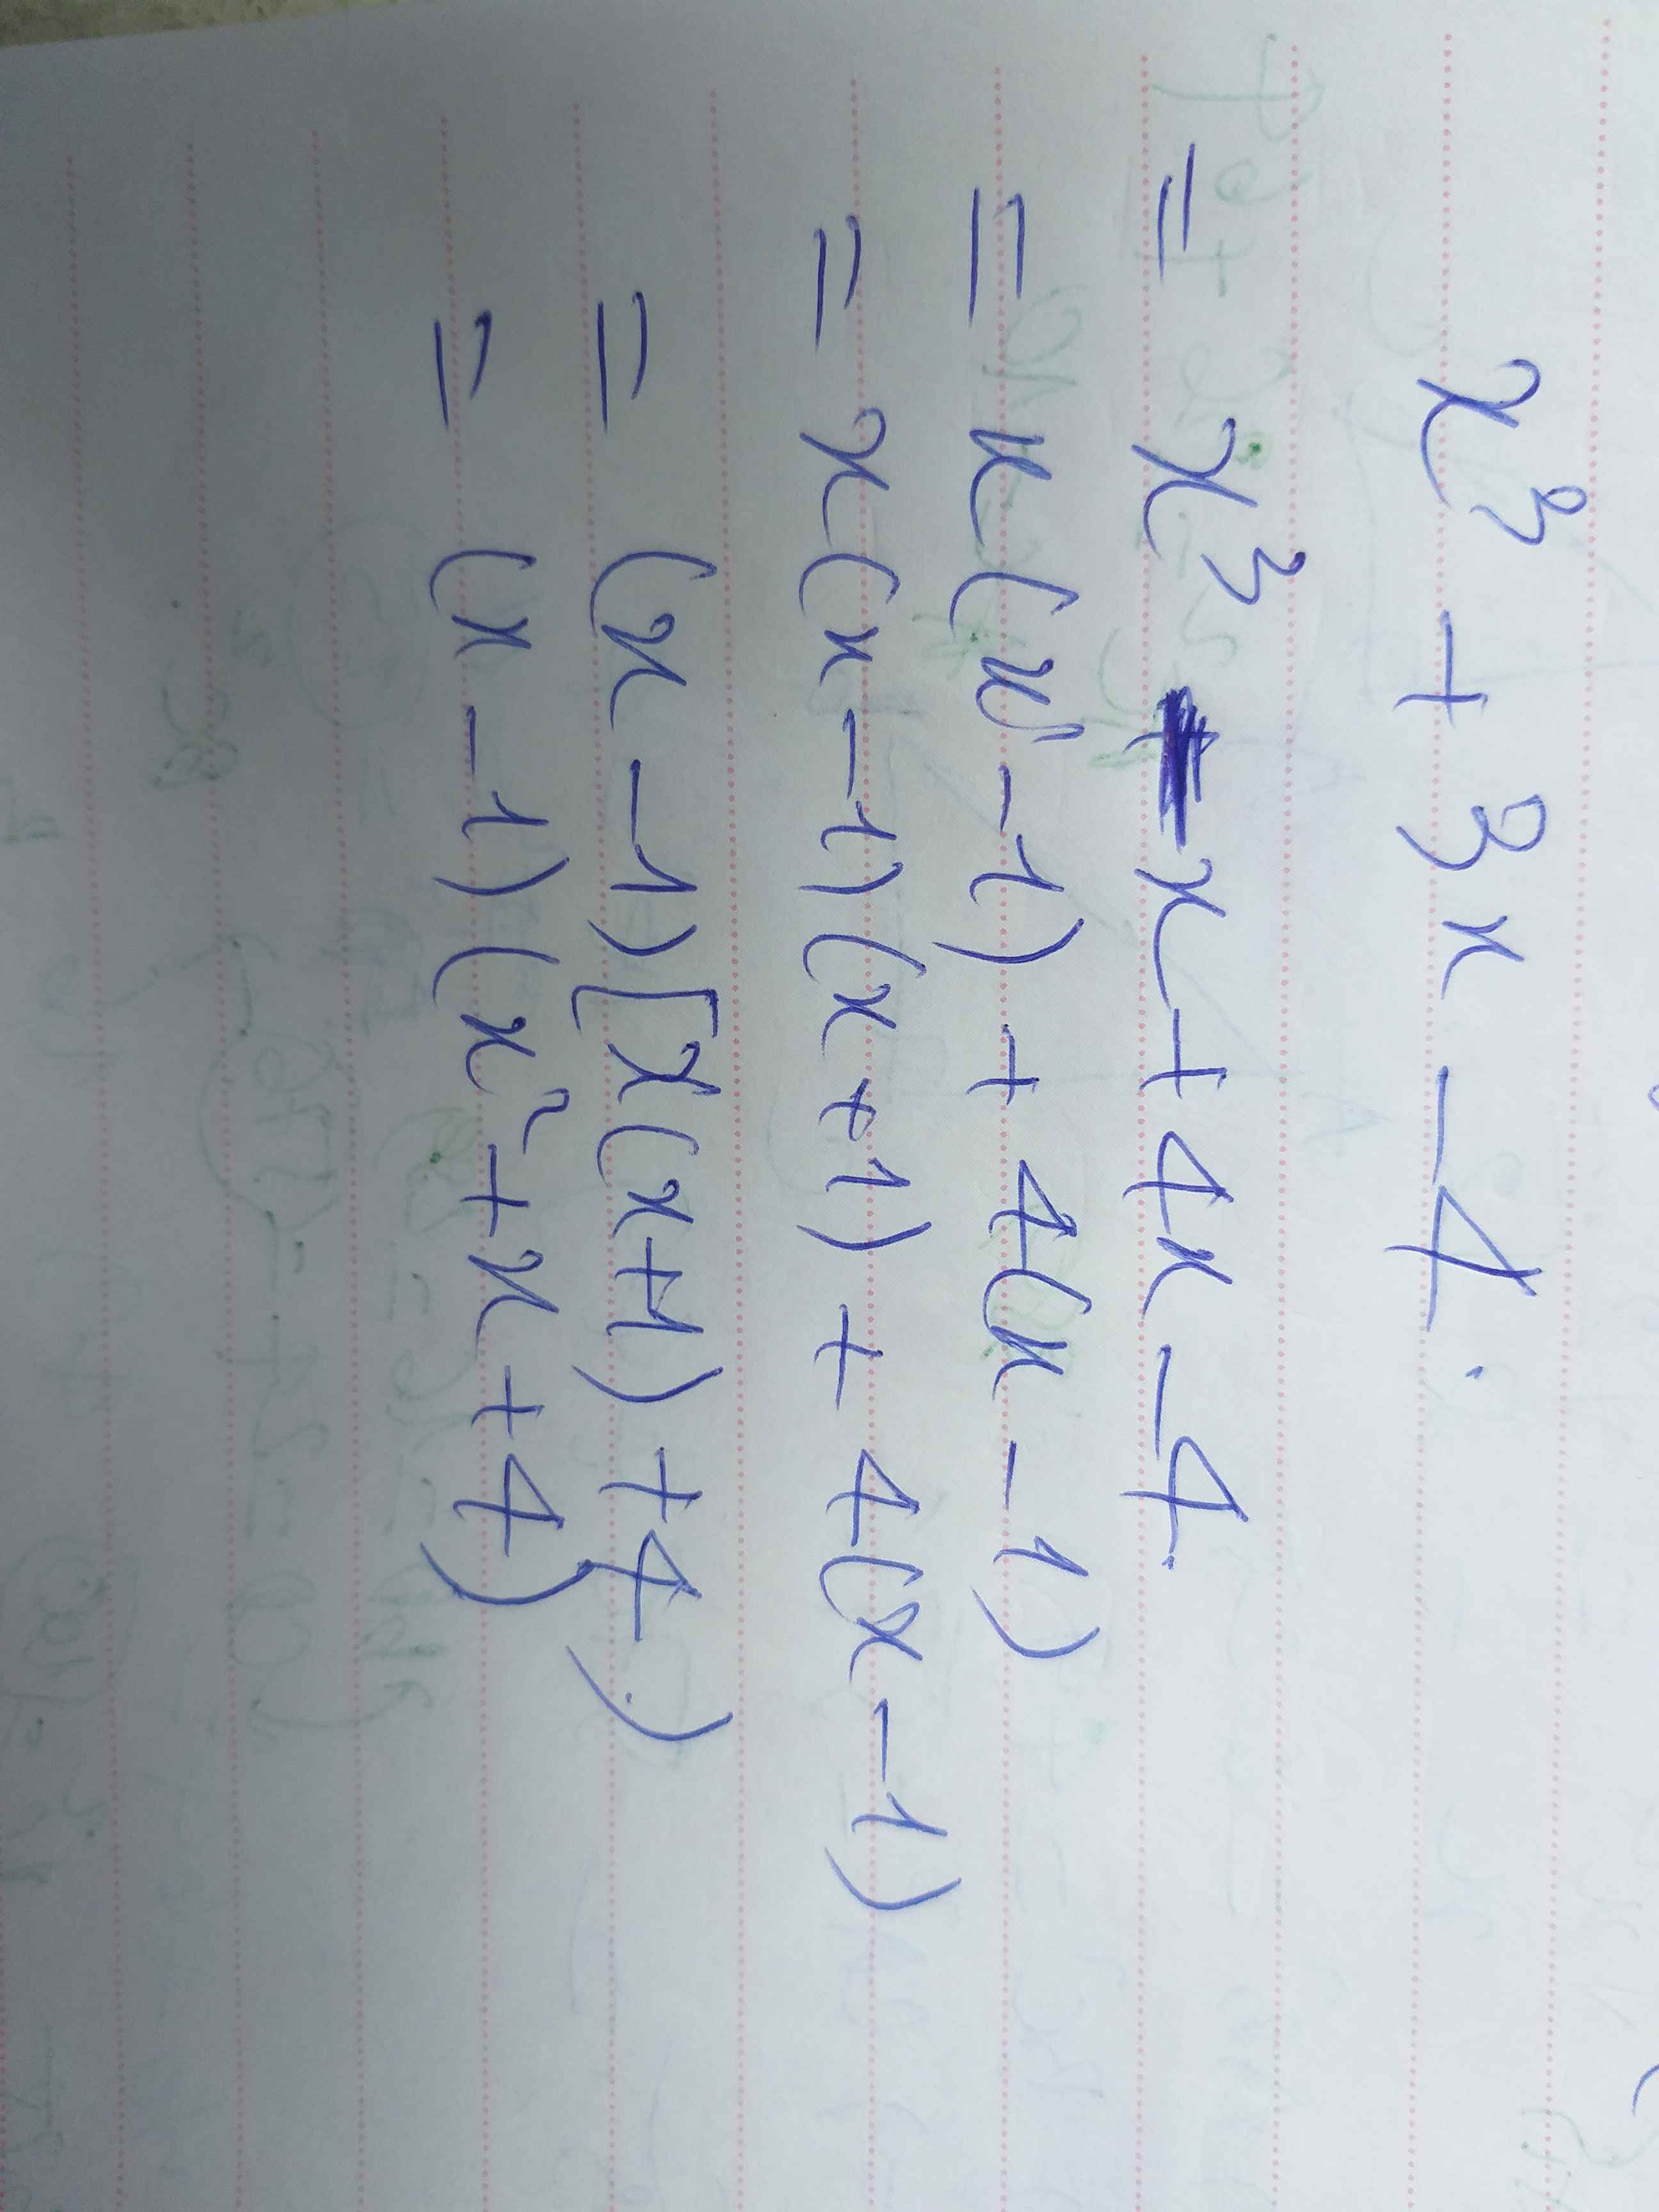 x³ + 3x - 4.
= x³ - x + 4x - 4.
= x(x² - 1) + 4(x - 1)
= x(x - 1)(x + 1) + 4(x - 1)
= (x - 1)[x(x + 1) + 4)
= (x - 1)(x² + x + 4)